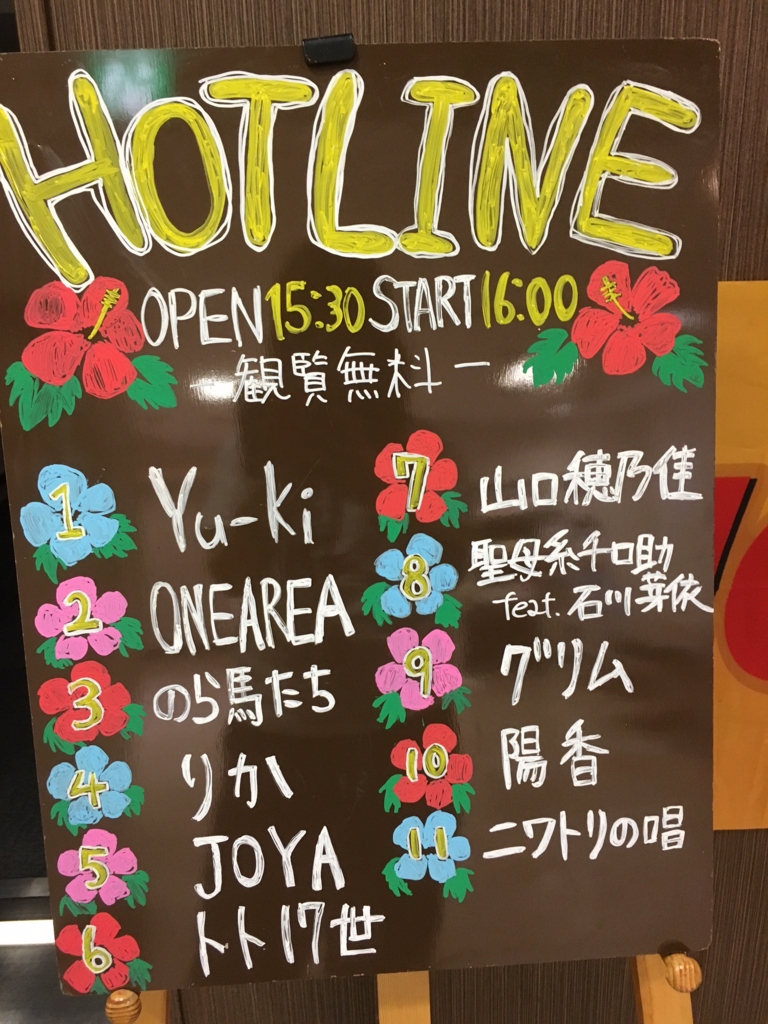 HOTLINE
OPEN 15:30 START 16:00
観覧無料ー
1 Yu-ki
2 ONEAREA
3 のら馬たち
4 りか
5 JOYA
6 トト17世
7 山口穂乃佳
8 聖母系千口助
feat. 石川芽依
9 グリム
10 陽香
11 ニワトリの唱